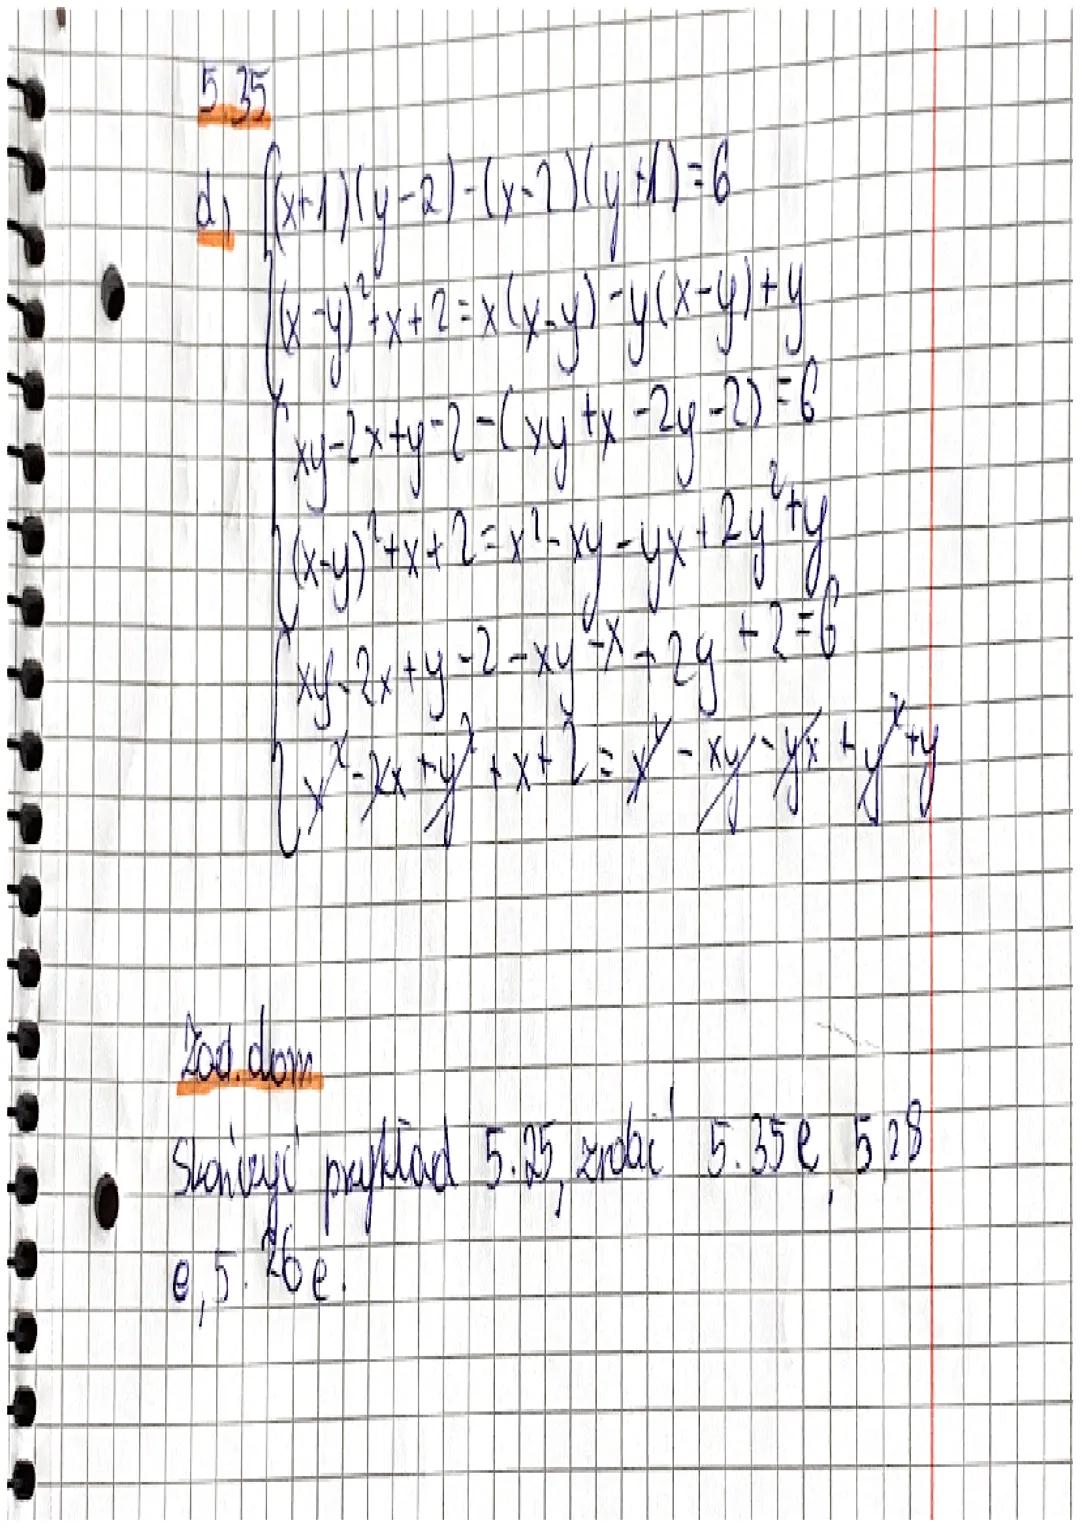 5.35
d) (x+1)(y-2)-(x-2)(y+1)=6
(x-y)²+x+2=x(x-y)-y(x-y)+y
xy-2x+y-2-(xy+x-2y-2)=6
(x-y)²+x+2=x²-xy-yx+2y²+y
xy-2x+y-2-xy-x+2y+2=6
x²-2x+y²+x+2=x²-xy-yx+y²+y
Zad. dom
Skończyć przykład 5.25, zrobić 5.35e, 5,28
e, 5.26e.